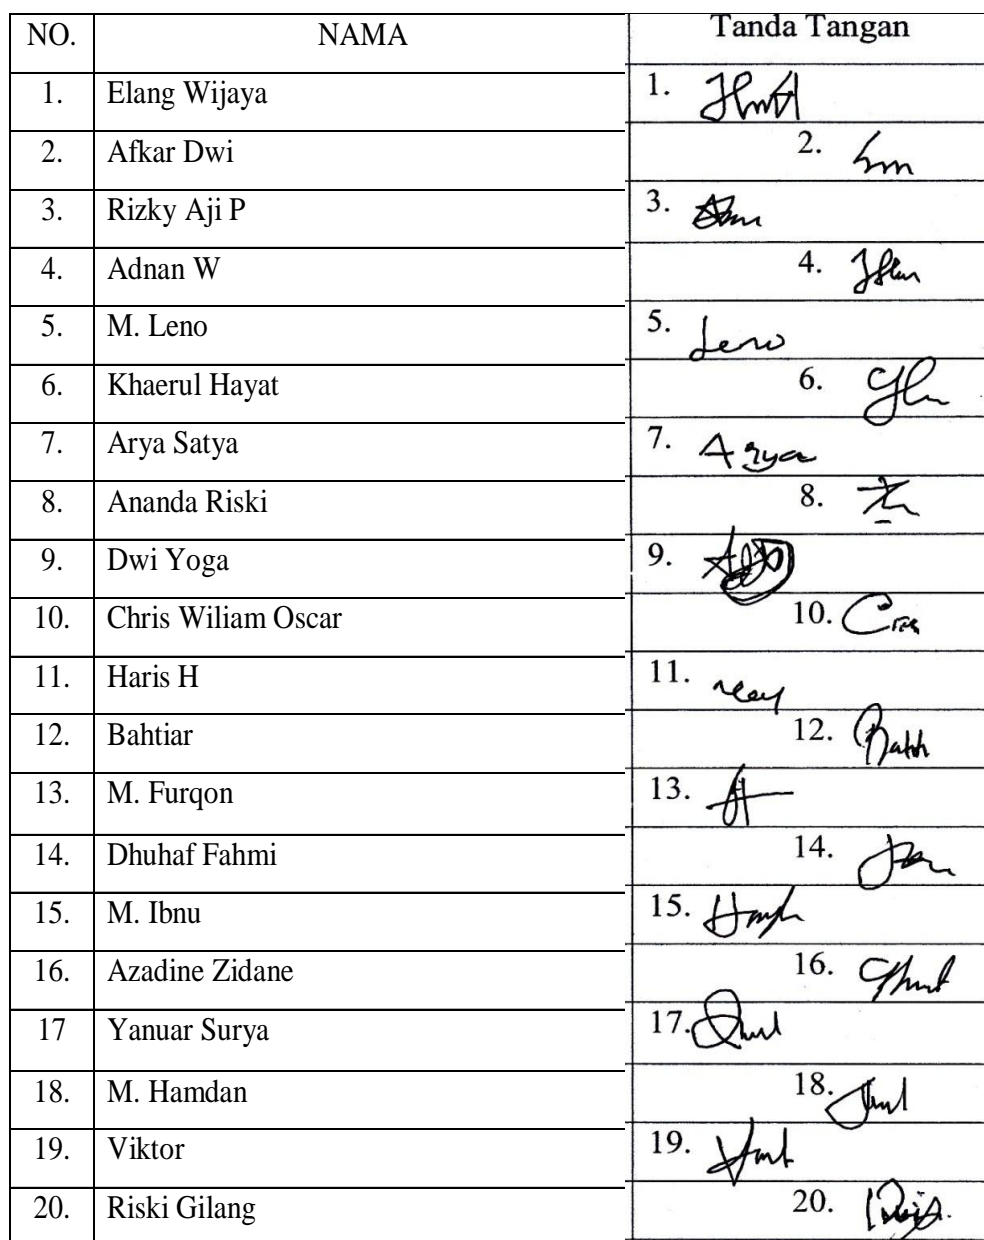 NO. NAMA Tanda Tangan
1. Elang Wijaya 1.
2. Afkar Dwi 2.
3. Rizky Aji P 3.
4. Adnan W 4.
5. M. Leno 5. Leno
6. Khaerul Hayat 6.
7. Arya Satya 7. Arya
8. Ananda Riski 8.
9. Dwi Yoga 9.
10. Chris Wiliam Oscar 10.
11. Haris H 11.
12. Bahtiar 12.
13. M. Furqon 13.
14. Dhuhaf Fahmi 14.
15. M. Ibnu 15.
16. Azadine Zidane 16.
17 Yanuar Surya 17.
18. M. Hamdan 18.
19. Viktor 19.
20. Riski Gilang 20.